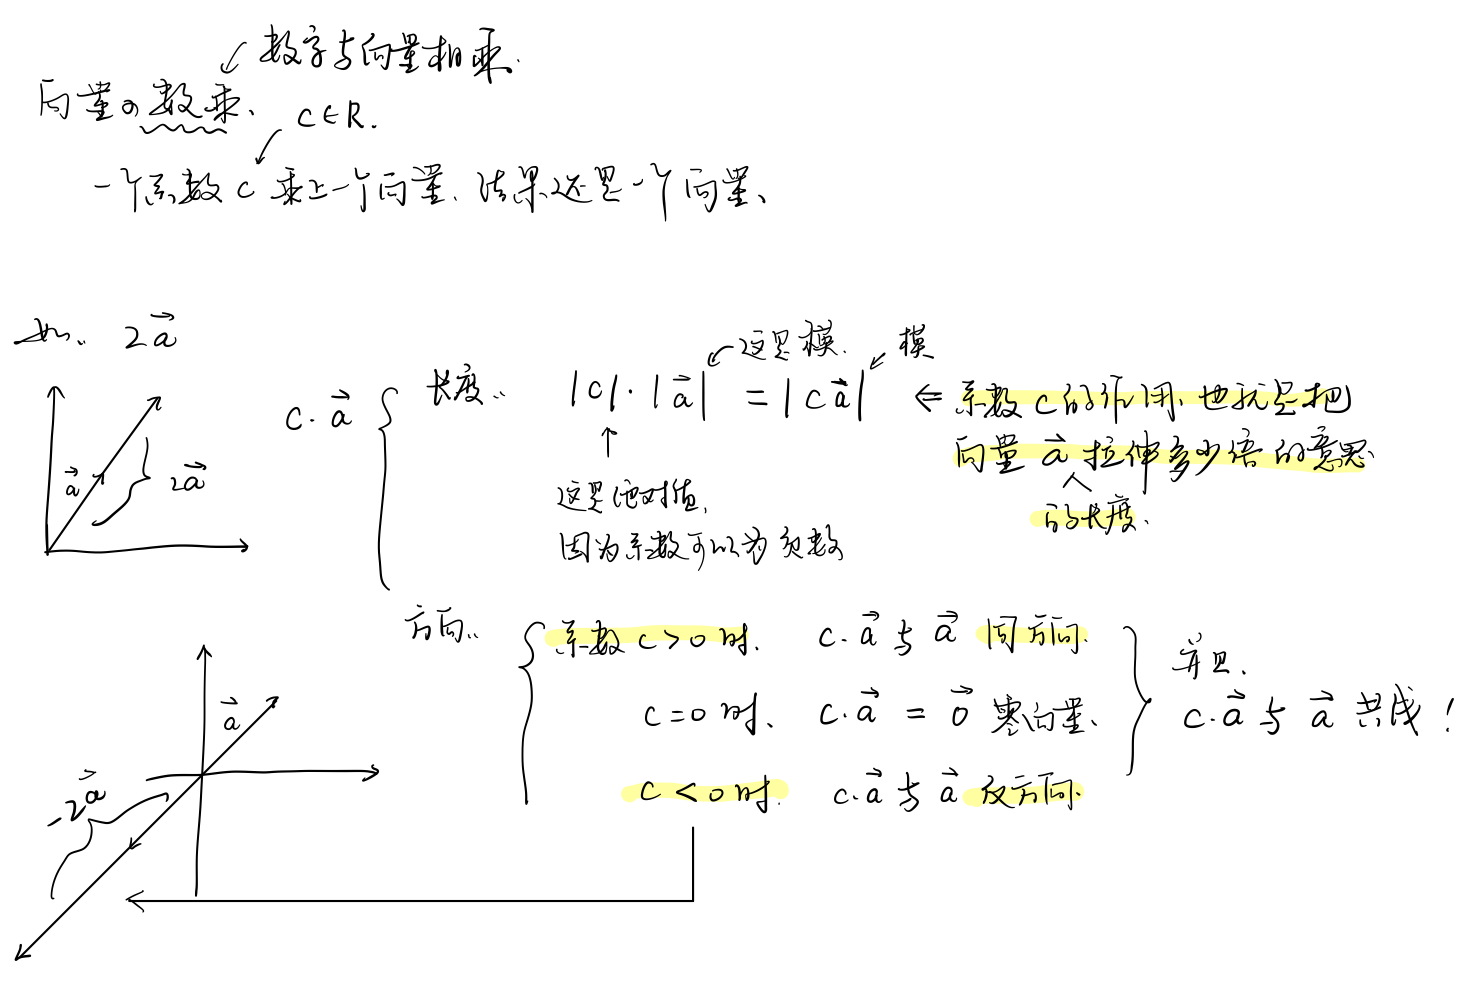 数字与向量相乘.
向量の数乘、
c∈R.
一个系数 c 乘上一个向量. 结果还是一个向量、
如.. 2a⃗
a⃗
2a⃗
c·a⃗
长度.. |c|·|a⃗| = |ca⃗|
这是模.
模
这是绝对值,
因为系数可以为负数
⇐ 系数 c 的作用、也就是把
向量 a⃗ 拉伸多少倍的意思
的长度.
方向..
系数 c>0 时. c·a⃗ 与 a⃗ 同方向.
c=0 时、 c·a⃗ = 0⃗ 零向量、
c<0 时. c·a⃗ 与 a⃗ 反方向.
并且.
c·a⃗ 与 a⃗ 共线!
a⃗
-2a⃗